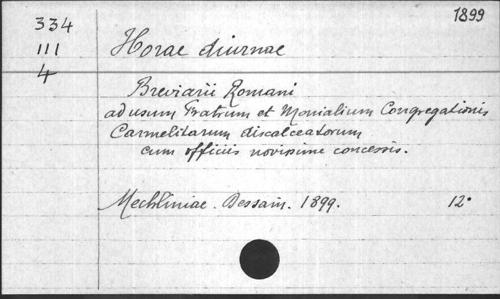 334
111
4
1899
Horae diurnae
Breviarii Romani
ad usum Fratrum et Monialium Congregationis
Carmelitarum discalceatorum
cum officiis novissime concessis.
Mechliniae. Dessain. 1899. 12°